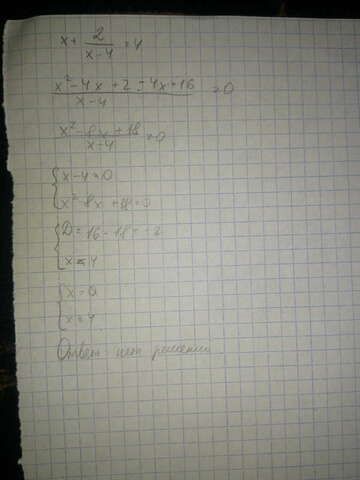 x + 2/(x-4) = 4
(x²-4x+2-4x+16)/(x-4) = 0
(x²-8x+18)/(x-4) = 0
{ x-4=0
x²-8x+18=0
{ D=16-18=-2
x=4
{ x=0
x=4
Ответ: нет решений